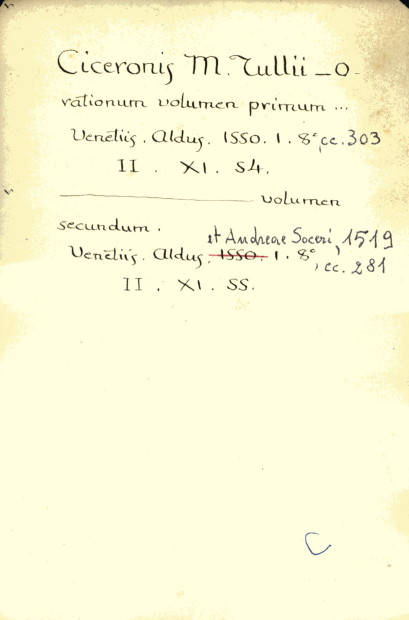 Ciceronis M. Tullii _ o.
rationum volumen primum ...
Venetiis. Aldus. 1550. 1. 8°, cc. 303
II . XI. 54.
volumen
secundum.
et Andreae Soceri, 1519
Venetiis. Aldus. 1550. 1. 8°
, cc. 281
II . XI. 55.
C